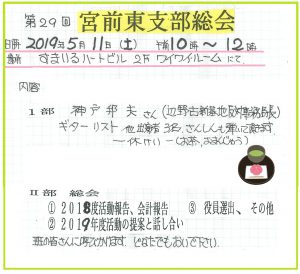 第29回 宮前東支部総会
日時 2019年5月11日(土) 午前10時～12時
場所 すまいるハートビル 2F ワイワイルーム にて
内容
1部 神戸邦夫さん
ギターリスト 他 さんしんも
一休け！(お茶、おまんじゅう)
Ⅱ部 総会
① 2018度活動報告、会計報告 ③ 役員選出、その他
② 2019年度活動の提案と話し合い
班の皆さんに声をかけます どなたでもおいで下さい。